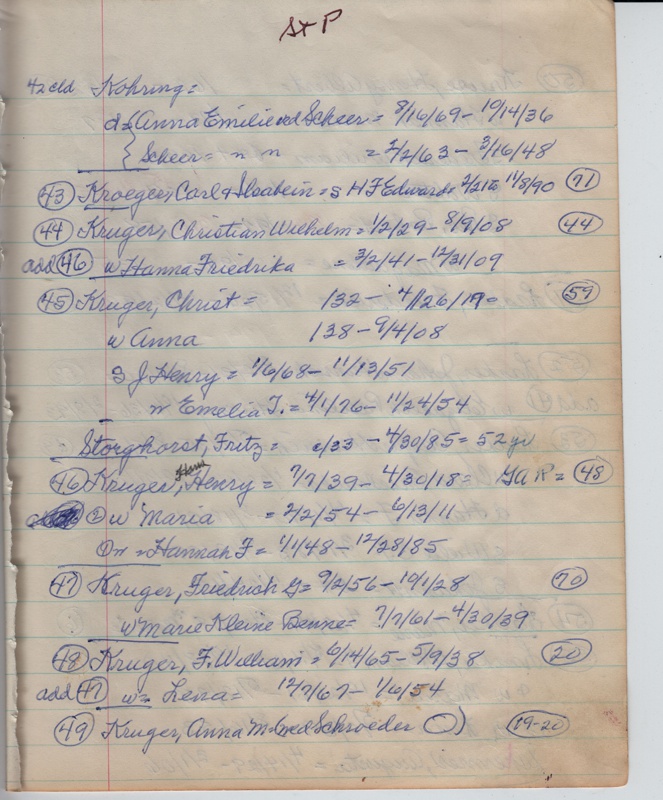 St P
42 cld Kohring =
d = { Anna Emilie wd Scheer = 8/16/69 - 10/14/36
{ Scheer = " " = 2/2/63 - 3/16/48
43 Kroeger, Carl & Ilsabein = s H F Edward = 2/21 to 11/8/90 71
44 Kruger, Christian Wilhelm = 1/2/29 - 8/9/08 44
add 46 w Hanna Friedrika = 3/2/41 - 12/31/09
45 Kruger, Christ = /32 - 4/26/19- 59
w Anna /38 - 9/4/08
S J Henry = 1/6/68 - 11/13/51
w Emelia T. = 4/1/76 - 11/24/54
Storghorst, Fritz = c/33 - 4/30/85 = 52 yr
46 Kruger, Ham Henry = 7/7/39 - 4/30/18 = GAR = 48
2 w Maria = 2/2/54 - 6/13/11
1 w = Hannah F = 1/1/48 - 12/28/85
47 Kruger, Friedrich G = 9/2/56 - 10/1/28 70
w Marie Kleine Benne = 7/7/61 - 4/30/39
48 Kruger, F. William = 6/14/65 - 5/9/38 20
add 47 w = Lena = 12/7/67 - 1/6/54
49 Kruger, Anna M = ned Schroeder ) 19-20